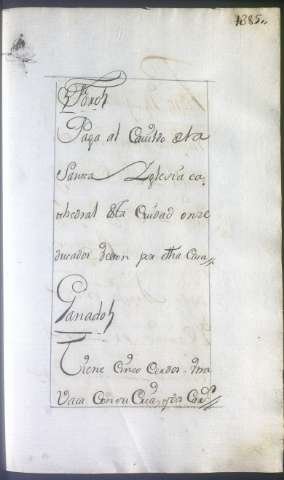 1885,,
Foros
Paga al Cauildo de la
Santa Iglesia ca,
thedral desta Ciudad onze
ducados de von por dha Casa
Ganados
Tiene Cinco Cerdos, Una
Vaca Con su Cria, y dos